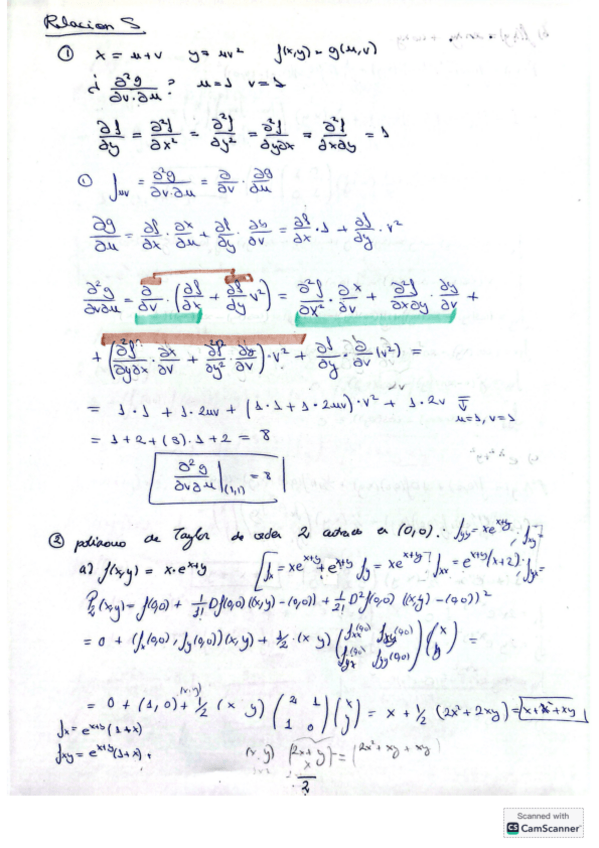 Relacion 5.
① x = u+v    y = uv²    f(x,y) = g(u,v)
¿ ∂²g/∂v·∂u ?    u=1   v=1
∂f/∂y = ∂²f/∂x² = ∂²f/∂y² = ∂²f/∂y∂x = ∂²f/∂x∂y = 1
① f_uv = ∂²g/∂v·∂u = ∂/∂v · ∂g/∂u
∂g/∂u = ∂f/∂x · ∂x/∂u + ∂f/∂y · ∂y/∂v = ∂f/∂x · 1 + ∂f/∂y · v²
∂²g/∂v∂u = ∂/∂v · (∂f/∂x + ∂f/∂y v²) = ∂²f/∂x² · ∂x/∂v + ∂²f/∂x∂y · ∂y/∂v +
+ (∂²f/∂y∂x · ∂x/∂v + ∂²f/∂y² · ∂y/∂v) · v² + ∂f/∂y · ∂/∂v (v²) =
= 1·1 + 1·2uv + (1·1 + 1·2uv)·v² + 1·2v =
u=1, v=1
= 1+2+(3)·1+2 = 8
∂²g/∂v∂u |(1,1) = 8
② polinomo de Taylor de orden 2 centrado en (0,0). f_yy = xe^(x+y)
a) f(x,y) = x·e^(x+y)   [f_x = xe^(x+y) + e^(x+y)  f_y = xe^(x+y)] f_xx = e^(x+y)(x+2)
P₂(x,y) = f(0,0) + 1/1! Df(0,0)((x,y)-(0,0)) + 1/2! D²f(0,0) ((x,y)-(0,0))²
= 0 + (f_x(0,0), f_y(0,0))(x,y) + 1/2 · (x y) (f_xx(0,0) f_xy(0,0) f_yx(0,0) f_yy(0,0)) (x y) =
= 0 + (1,0)(x,y) + 1/2 (x y) (2 1 1 0) (x y) = x + 1/2 (2x²+2xy) = x+x²+xy
f_x = e^(x+y)(1+x)
f_xy = e^(x+y)(1+x).
(x, y) (2x+y x) = (2x²+xy+xy)
2
Scanned with
CS CamScanner